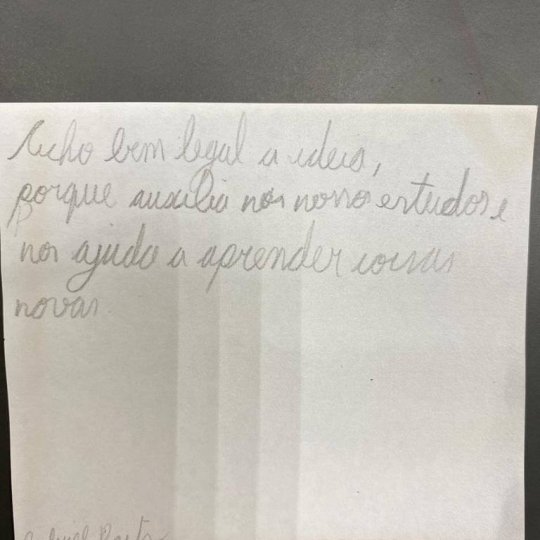 Acho bem legal a ideia,
porque auxilia nos nosso estudos e
nos ajuda a aprender coisas
novas.